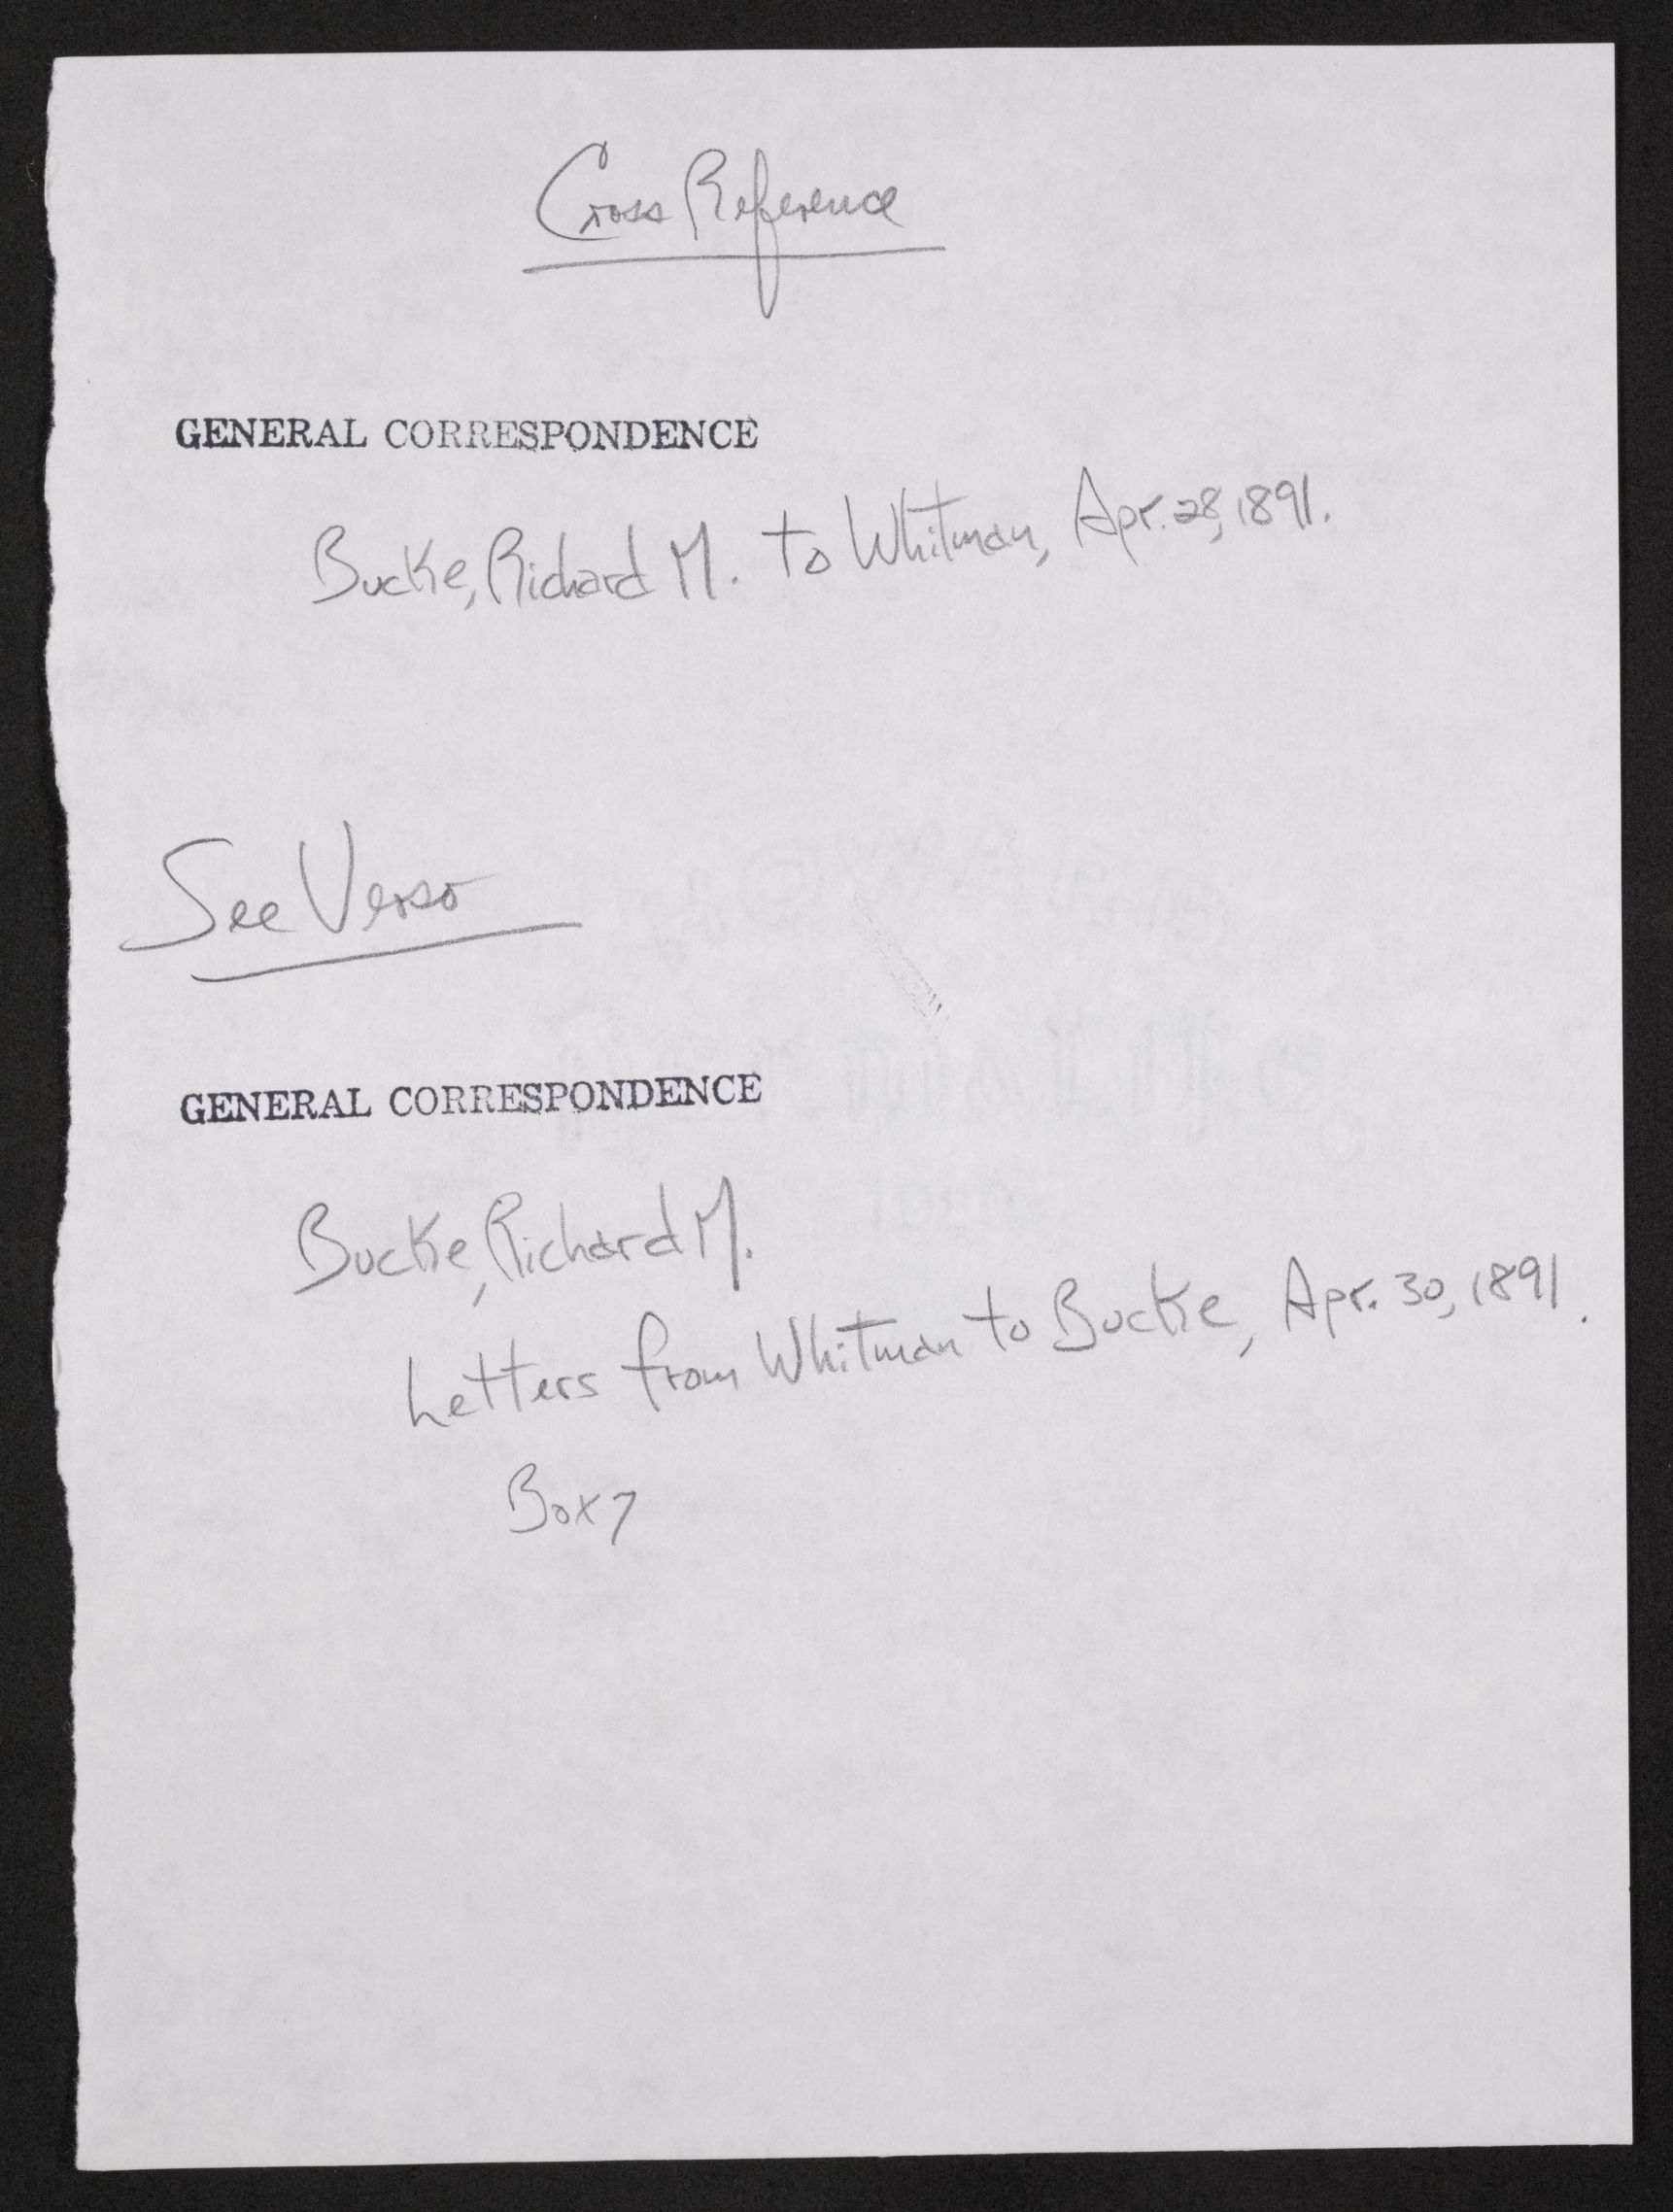 Cross Reference
GENERAL CORRESPONDENCE
Bucke, Richard M. to Whitman, Apr. 28, 1891.
See Verso
GENERAL CORRESPONDENCE
Bucke, Richard M.
Letters from Whitman to Bucke, Apr. 30, 1891.
Box 7